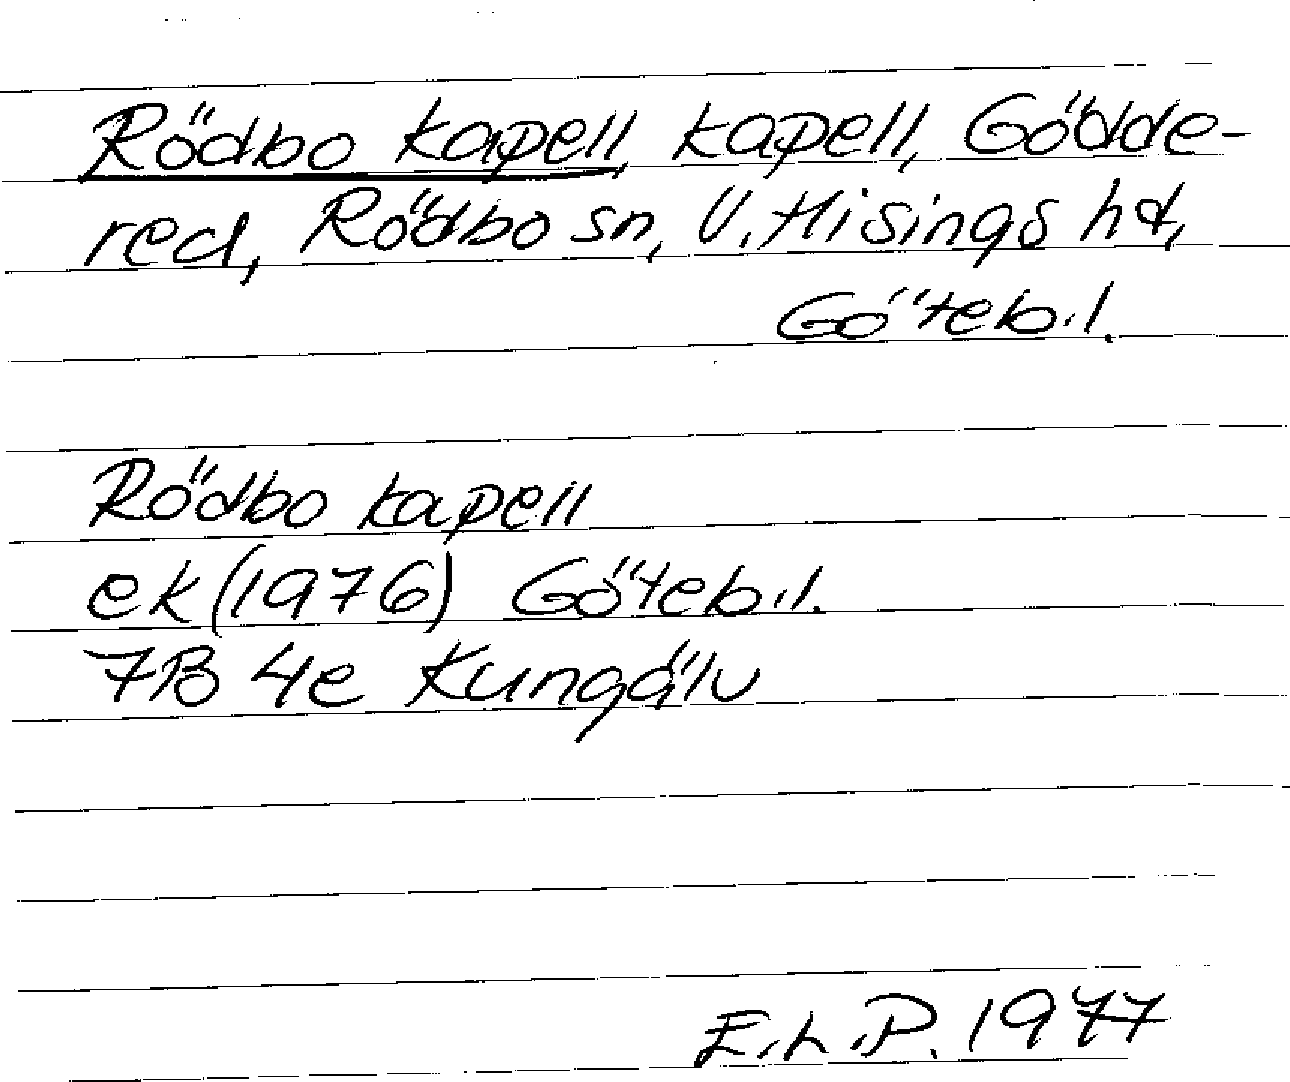 Rödbo kapell, kapell, Gödde-
red, Rödbo sn, V. Hisings hd,
Göteb.l.
Rödbo kapell
ek (1976) Göteb.l.
7B 4e Kungälv
E.L.P. 1977